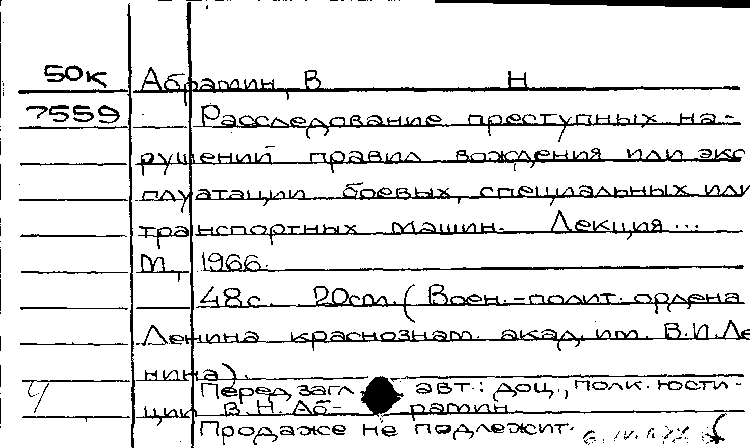 50к Абрамин, В Н
7559 Расследование преступных на-
рушений правил вождения или экс
плуатации боевых, специальных или
транспортных машин. Лекция...
М., 1966.
48с. 20см. (Воен.-полит. ордена
Ленина краснознам. акад. им. В.И.Ле
нина).
Перед загл авт.: доц., полк. юсти-
ции В.Н. Аб- рамин.
Продаже не подлежит.